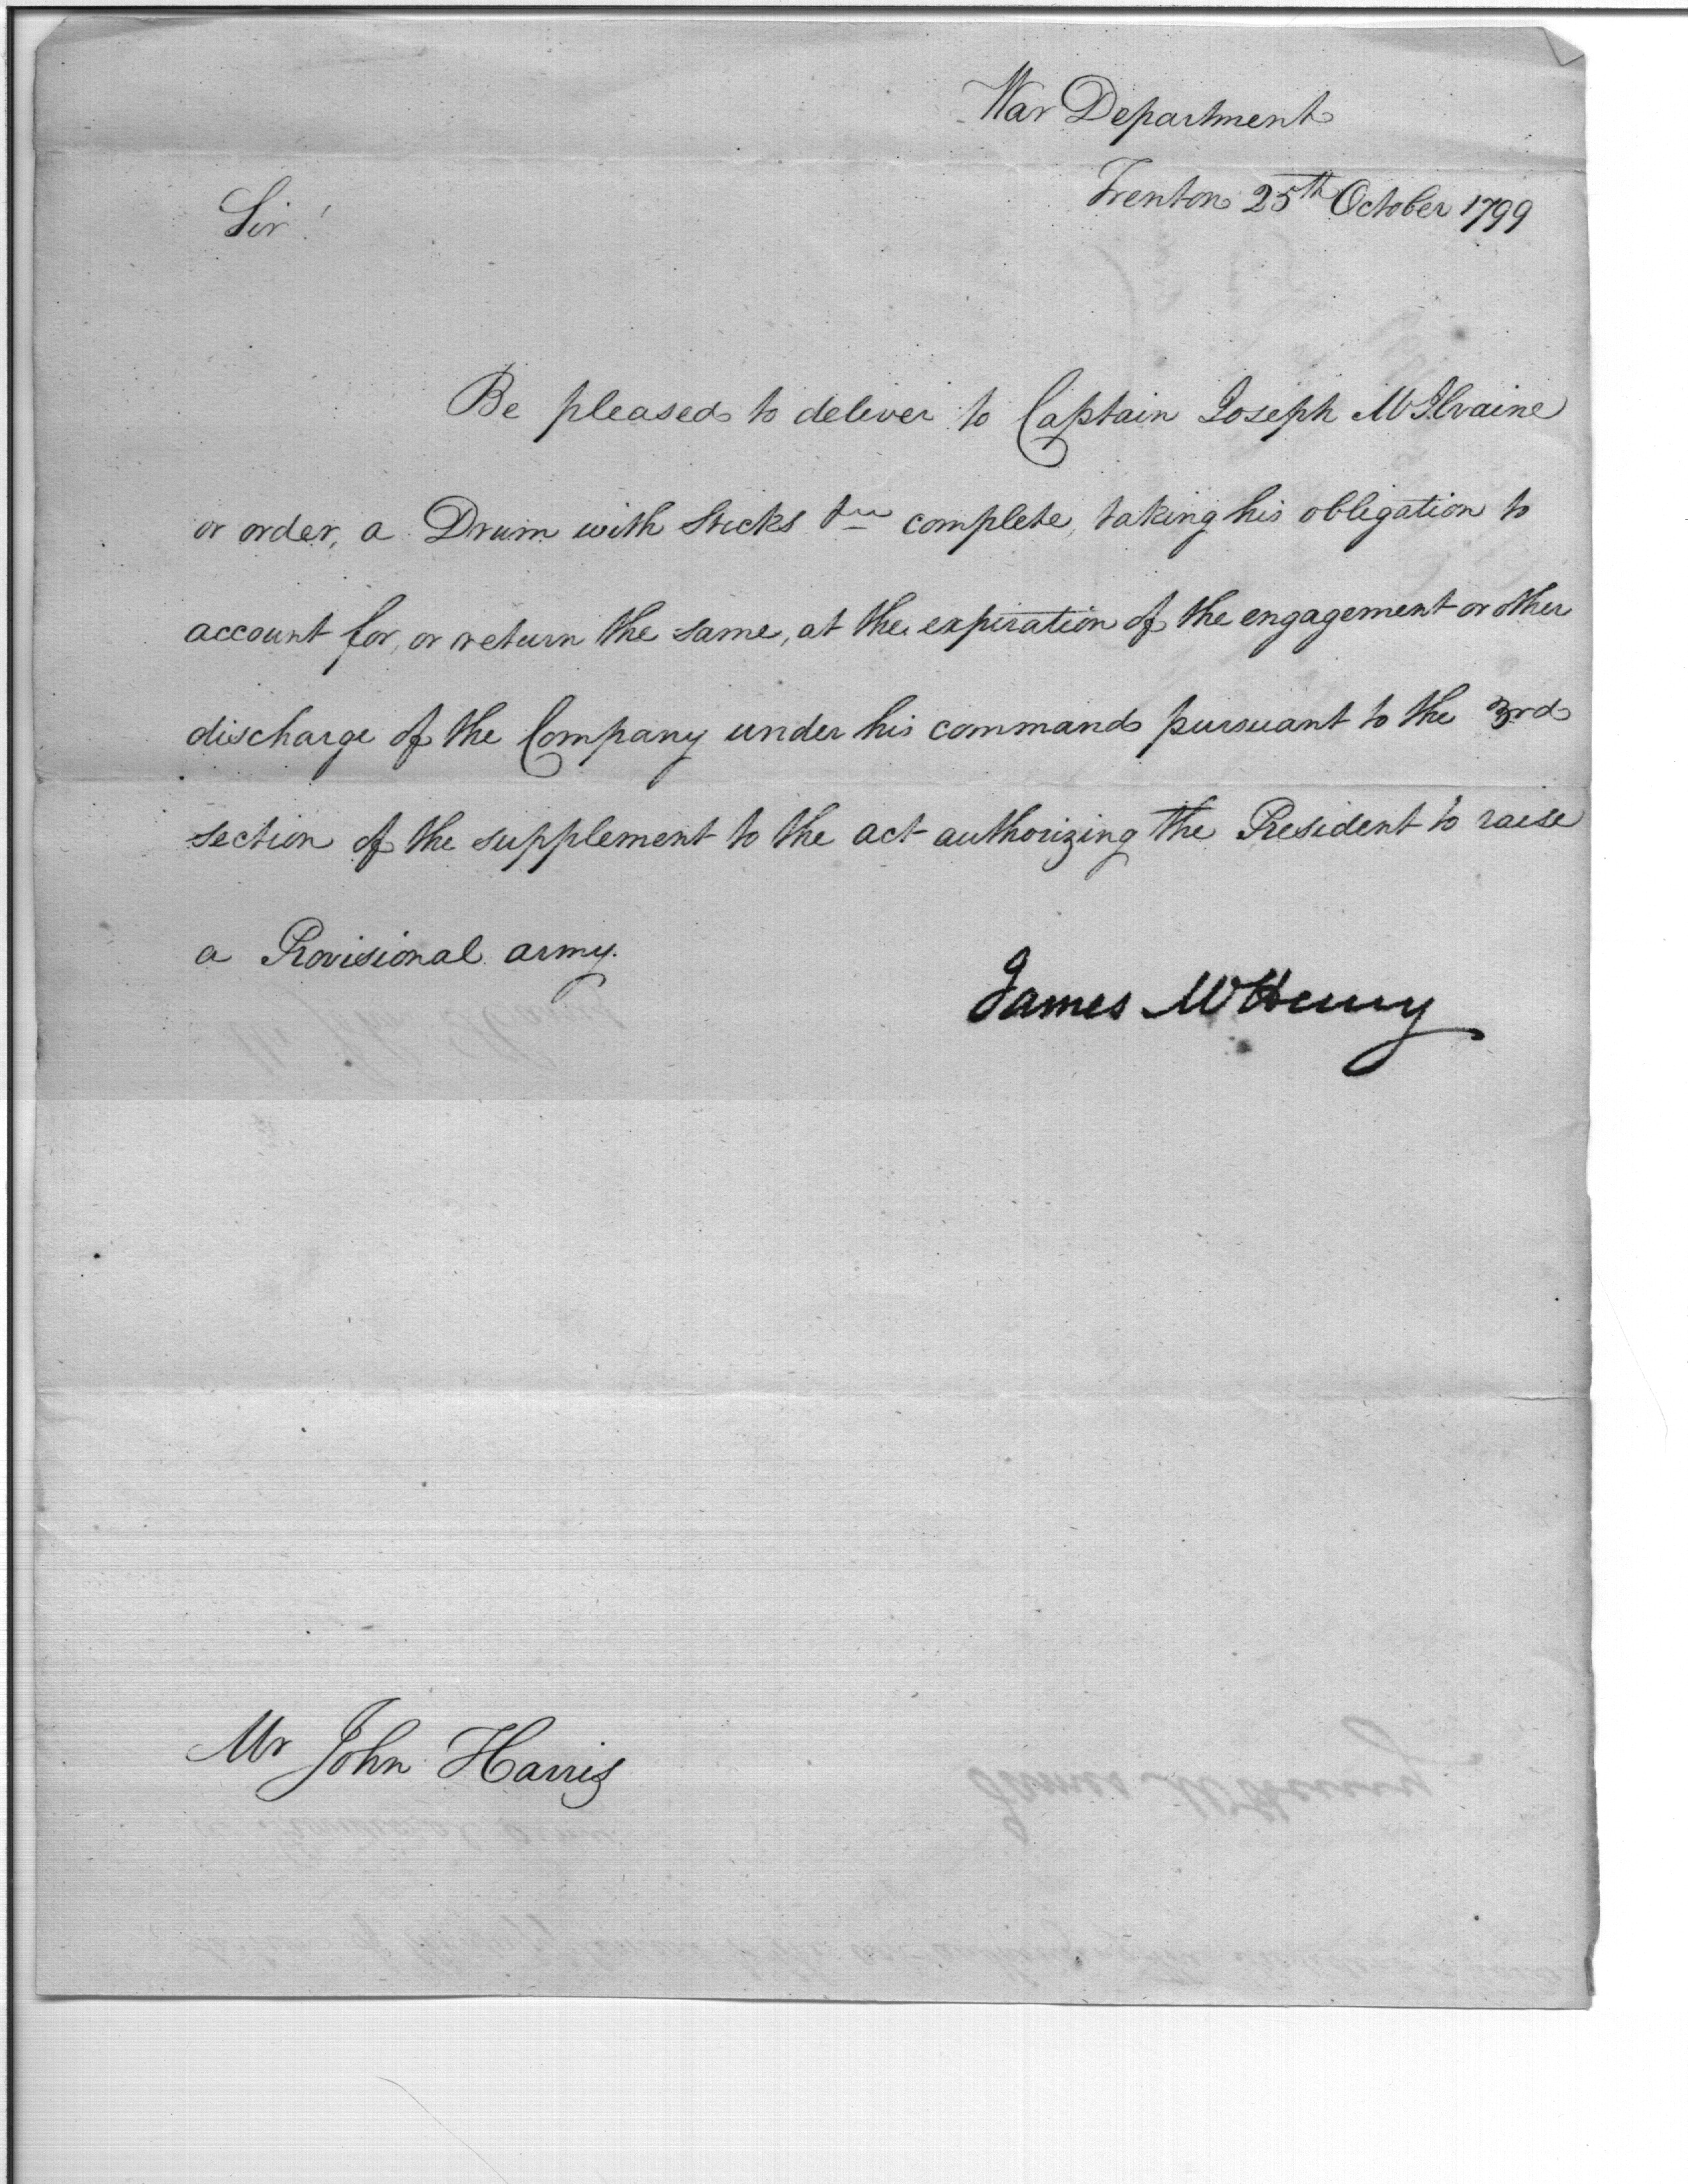 War Department
Trenton 25th October 1799
Sir!
Be pleased to deliver to Captain Joseph McIlvaine
or order, a Drum with Sticks &ca complete, taking his obligation to
account for, or return the same, at the expiration of the engagement or other
discharge of the Company under his command pursuant to the 3rd
section of the supplement to the act authorizing the President to raise
a Provisional army.
James McHenry
Mr John Harris